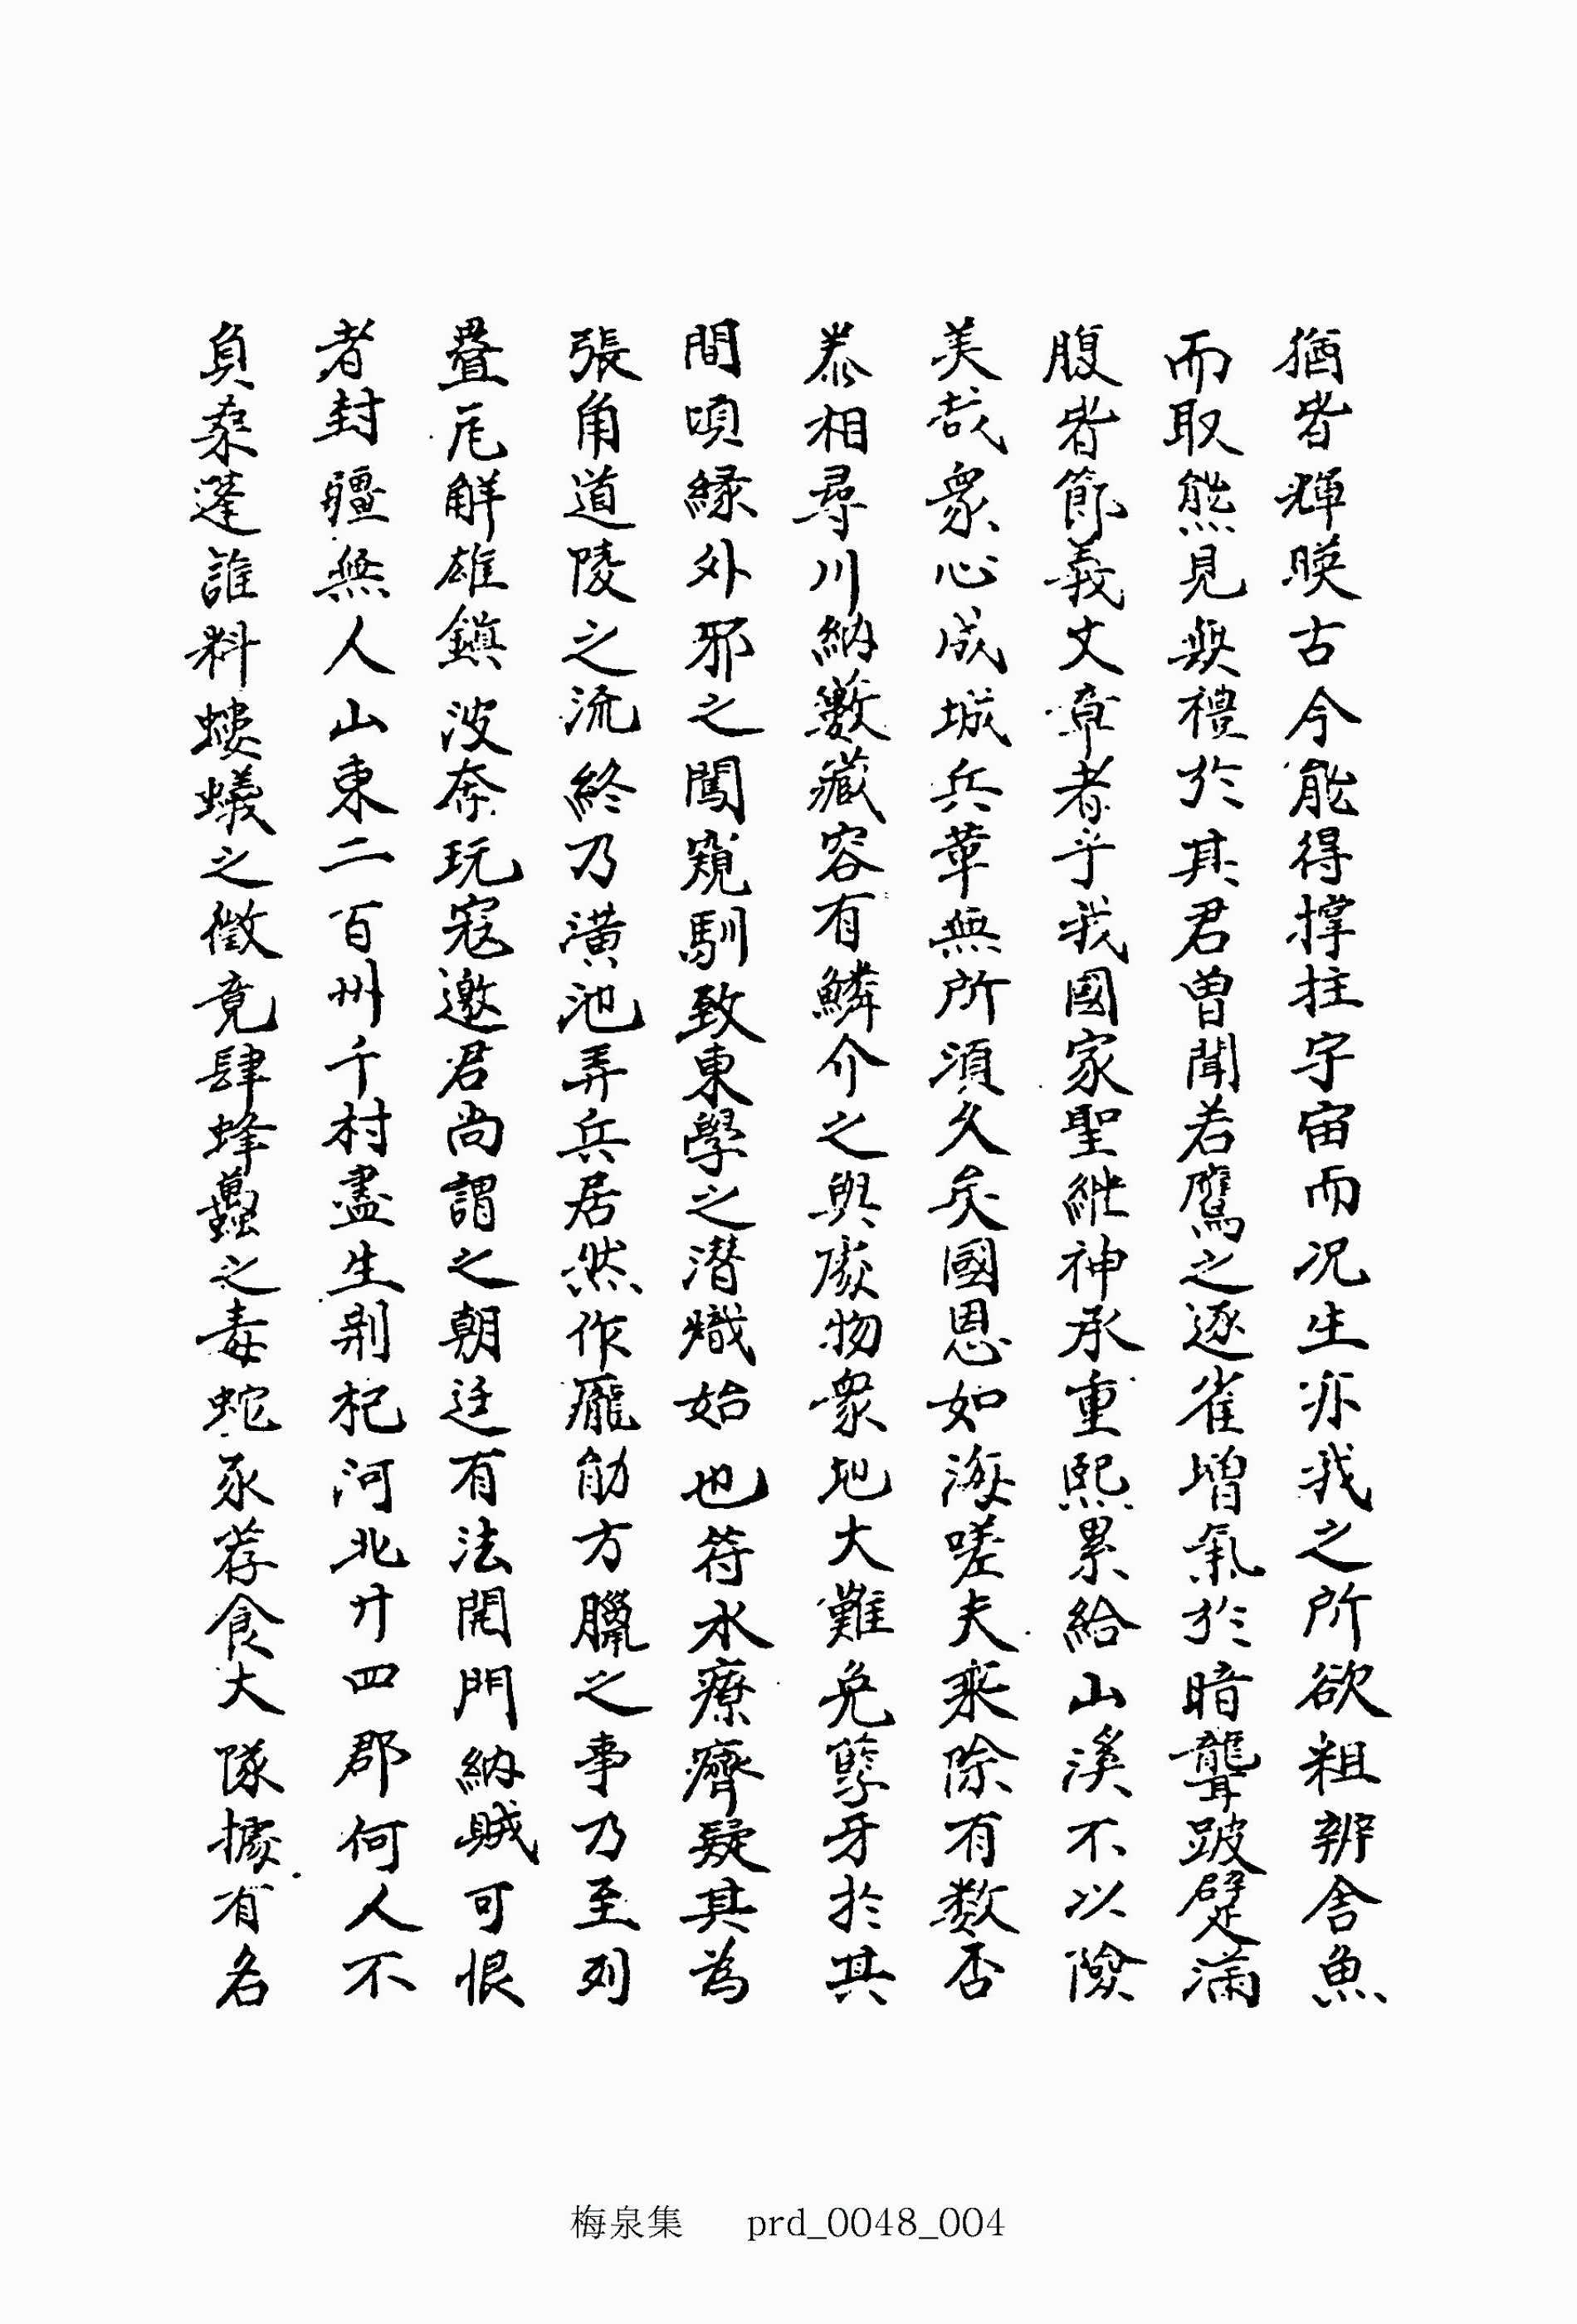 猶者輝暎古今能得撑拄宇宙而况生亦我之所欲粗辨舎魚
而取熊見無禮於其君曽聞若鷹之逐雀増氣於暗聾跛躄滿
腹者節義文章者乎我國家聖継神承重熙累給山溪不以險
美哉衆心成城兵革無所須久矣國恩如海嗟夫乘除有数否
泰相尋川納藪藏容有鱗介之與處物衆地大難免孽牙於其
間頃縁外邪之闖窺馴致東學之潜熾始也符水療癠疑其為
張角道陵之流終乃潢池弄兵居然作龐勛方臘之事乃至列
疊瓦解雄鎭波奔玩寇邀君尚謂之朝廷有法開門納賊可恨
者封疆無人山東二百州千村盡生荆杞河北廾四郡何人不
負桑蓬誰料螻蟻之徴竟肆蜂蠆之毒蛇豕荐食大隊據有名
梅泉集 prd_0048_004